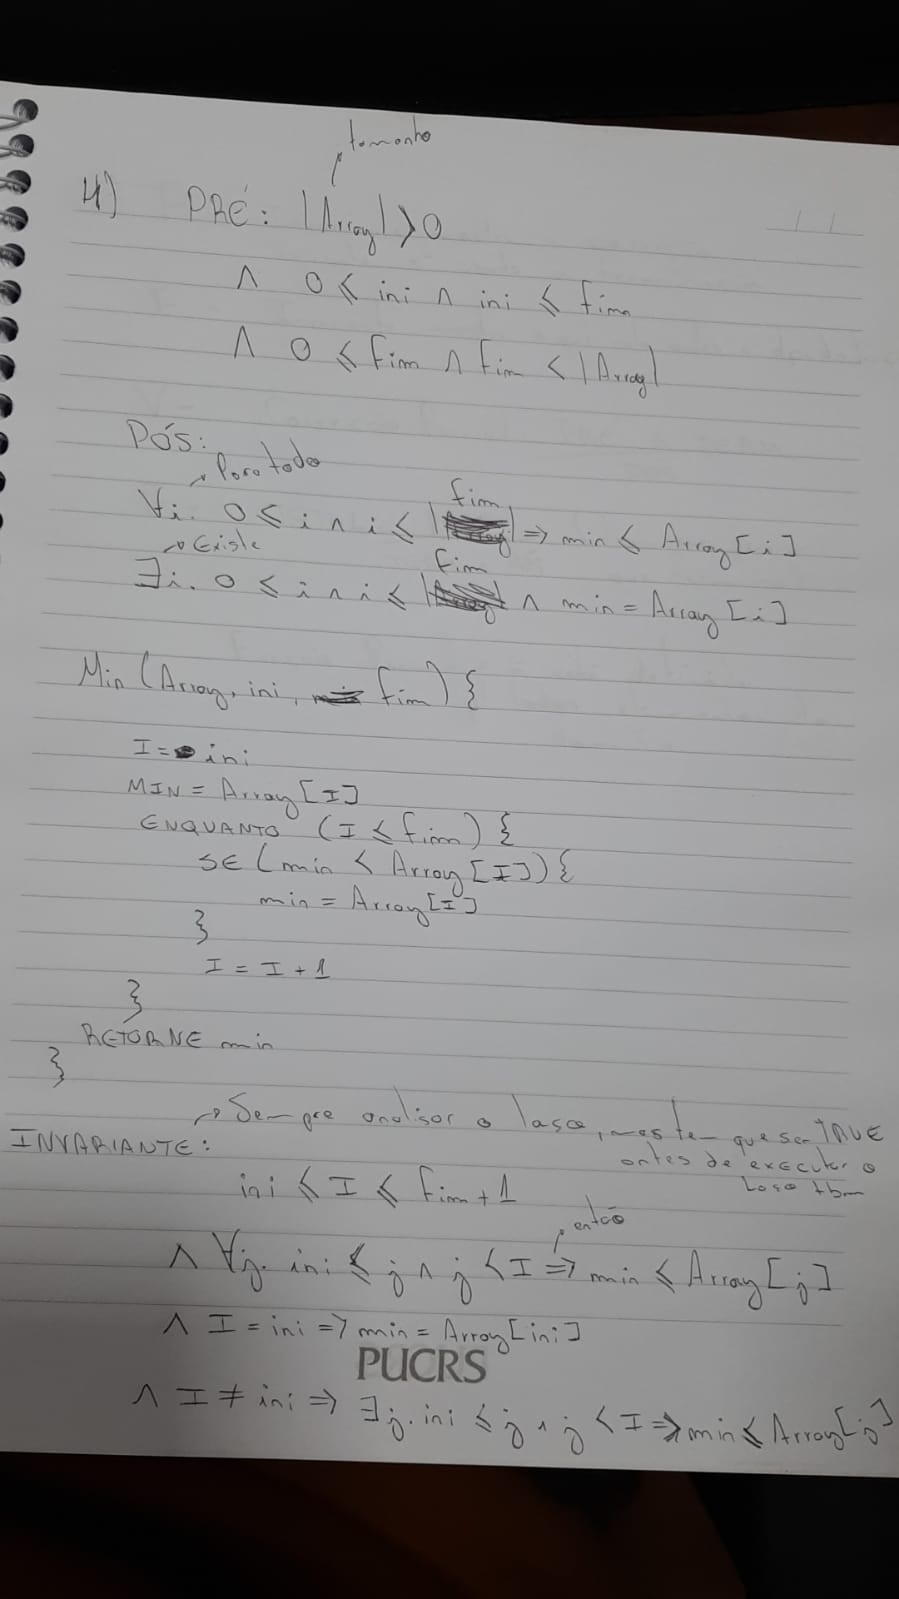 tamanho
4) PRÉ: |Array| > 0
∧ 0 ≤ ini ∧ ini ≤ fim
∧ 0 ≤ fim ∧ fim < |Array|
PÓS:
Para todo
fim
∀i. 0 ≤ i ∧ i ≤ => min ≤ Array[i]
Existe
fim
∃i. 0 ≤ i ∧ i ≤ ∧ min = Array[i]
Min (Array, ini, fim) {
I = ini
MIN = Array[I]
ENQUANTO (I ≤ fim) {
SE (min < Array[I]) {
min = Array[I]
}
I = I + 1
}
RETORNE min
}
Sempre analisar o laço, mas tem que ser TRUE
INVARIANTE:
antes de executar o
Laço tbm
ini ≤ I ≤ fim + 1
então
∧ ∀j. ini ≤ j ∧ j < I => min ≤ Array[j]
∧ I = ini => min = Array[ini]
PUCRS
∧ I ≠ ini => ∃j. ini ≤ j ∧ j < I => min ≤ Array[j]